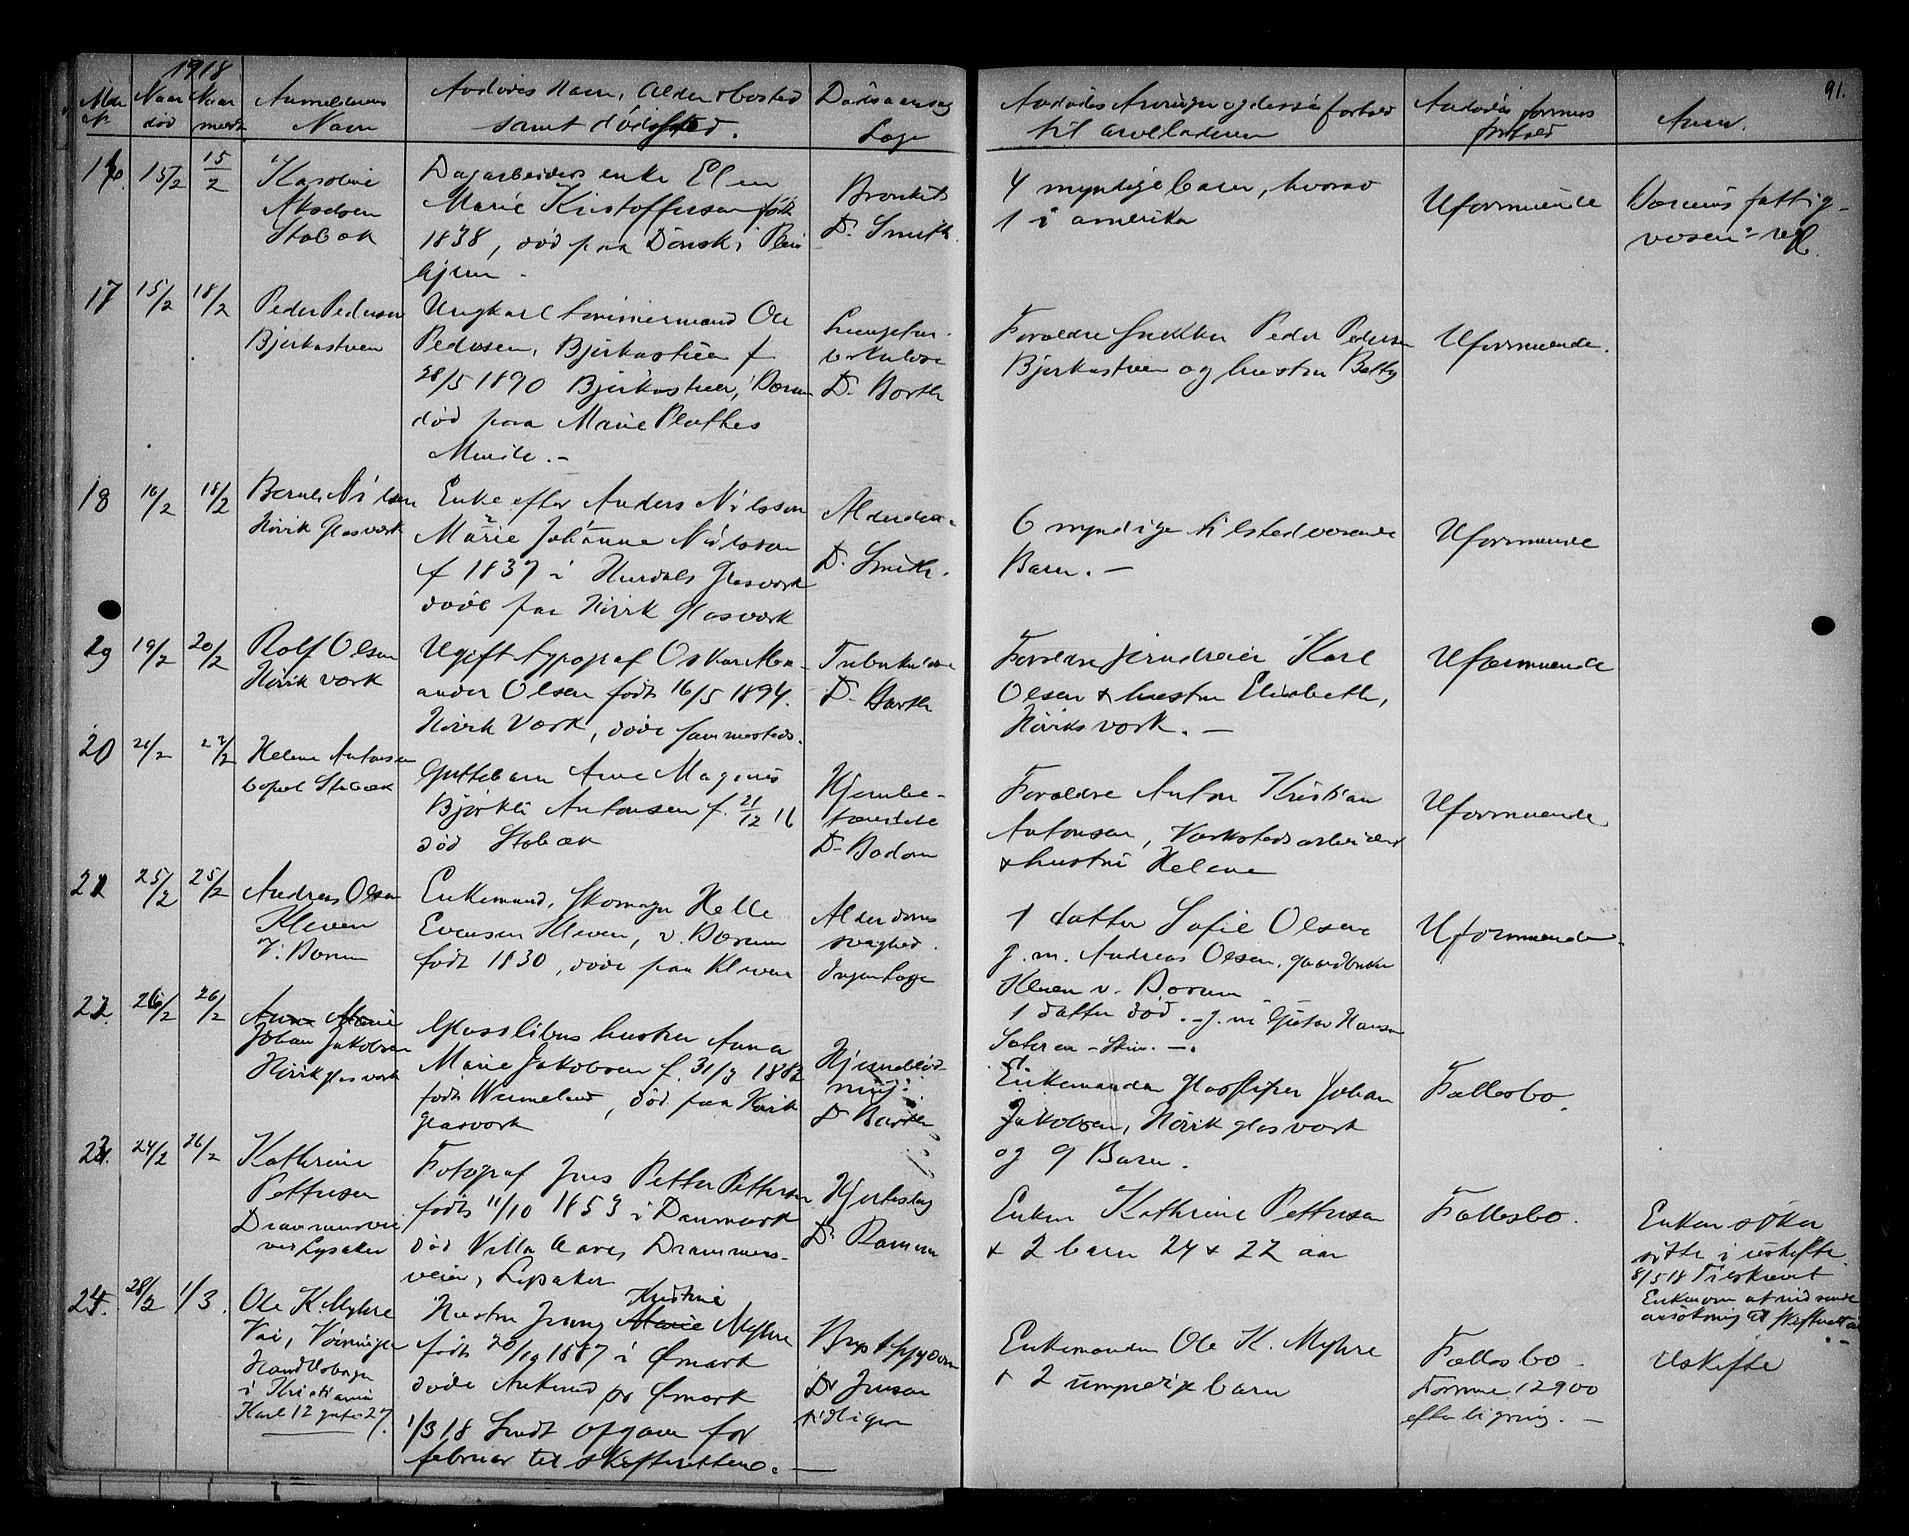 1918
91.
Naar død
Naar meldt
Anmelderens Navn
Avdødes Navn, Alder, bosted
samt dødssted.
Dødsaarsag
Læge
Avdødes Arvinger og dessas forhold
til arveladeren
Avdødes formues
forhold
Anm.
16. 15/2 15/2
Karoline
Akselsen
Stabæk
Dagarbeiders enke Elen
Marie Kristoffersen født
1838, død paa Dønski Plei
hjem.
Bronkit
Dr. Smith.
4 myndige barn, hvorav
1 i amerika
Uformuende
Bærums fattig-
væsen
17 15/2 18/2
Peder Pedersen
Bjerkastuen
Ungkarl tømmermand Ole
Pedersen, Bjerkastuen f
28/5 1890 Bjerkastuen, Bærum
død paa Marie Plathes
Minde. -
Lungetu-
berkulose
Dr. Barth
Forældre Snekker Peder Pedersen
Bjerkastuen og hustru Betty
Uformuende.
18 16/2 18/2
Bernh. Nilsen
Høvik Glasværk
Enke efter Anders Nilsson
Marie Johanne Nilsson
f 1837 i Hurdals Glasværk
døde paa Høvik Glasværk
Alderdom
Dr. Smith.
6 myndige tilstedeværende
Barn. -
Uformuende
19 19/2 20/2
Rolf Olsen
Høvik værk
Ugift typograf Oskar
Olsen født 16/5 1894.
Høvik Værk, døde sammesteds.
Tuberkulose
Dr. Barth
Forældre jerndreier Karl
Olsen & hustru Elisabeth,
Høviks værk. -
Uformuende
20 21/2 22/2
Helene Antonsen
Stabæk
Guttebarn Arne Magnus
Bjørkli Antonsen f. 21/12 16
død Stabæk
Hjerne-
Dr.
Forældre Anton Kristian
Antonsen, Værkstedsarbeider
& hustru Helene
Uformuende
21 25/2 25/2
Andreas Olsen
Kleven
V. Bærum
Enkemand, Skomager Helle
Evensen Kleven, v. Bærum
født 1830, døde paa Kleven
Alderdoms
svaghed.
Ingen Læge
1 datter Sofie Olsen
g. m. Andreas Olsen. gaardbruker
Kleven v. Bærum
1 datter død. - g. m. Gustav Hansen
Uformuende.
22. 26/2 26/2
Anna Marie
Johan Jakobsen
Høvik glasværk
Glasslibers hustru Anna
Marie Jakobsen f. 31/3 1882
født Wermeland, død paa Høvik
Glasværk
Hjerneblød-
ning.
Dr. Barth
Enkemanden Glassliper Johan
Jakobsen, Høvik glasværk
og 9 Barn.
Fællesbo.
23. 24/2 26/2
Kathrine
Pettersen
Drammensvei
ved Lysaker
Fotograf Jens Petter Pettersen
født 11/10 1853 i Danmark
død Villa Aares, Drammens-
veien, Lysaker
Hjerteslag
Dr. Ramm
Enken Kathrine Pettersen
& 2 barn 24 & 22 aar
Fællesbo.
Enken søker
sitte i uskifte
8/5 18 Tilskrevet
Enken om at indsende
ansøkning til skifteretten
24. 28/2 1/3.
Ole K. Myhre
i Kristiania
Karl 12 gate 27.
Hustru Jenny Marie Kristine Myhre
født 20/10 1887 i Ømark
døde Ankerud pr Ømark
Dr Jensen
4 Enkemanden Ole K. Myhre
& 2 umyndige barn
Fællesbo.
Formue 12900
efter ligning. -
Uskifte
1/3 18 Sendt opgave for
februar til skifteretten. -